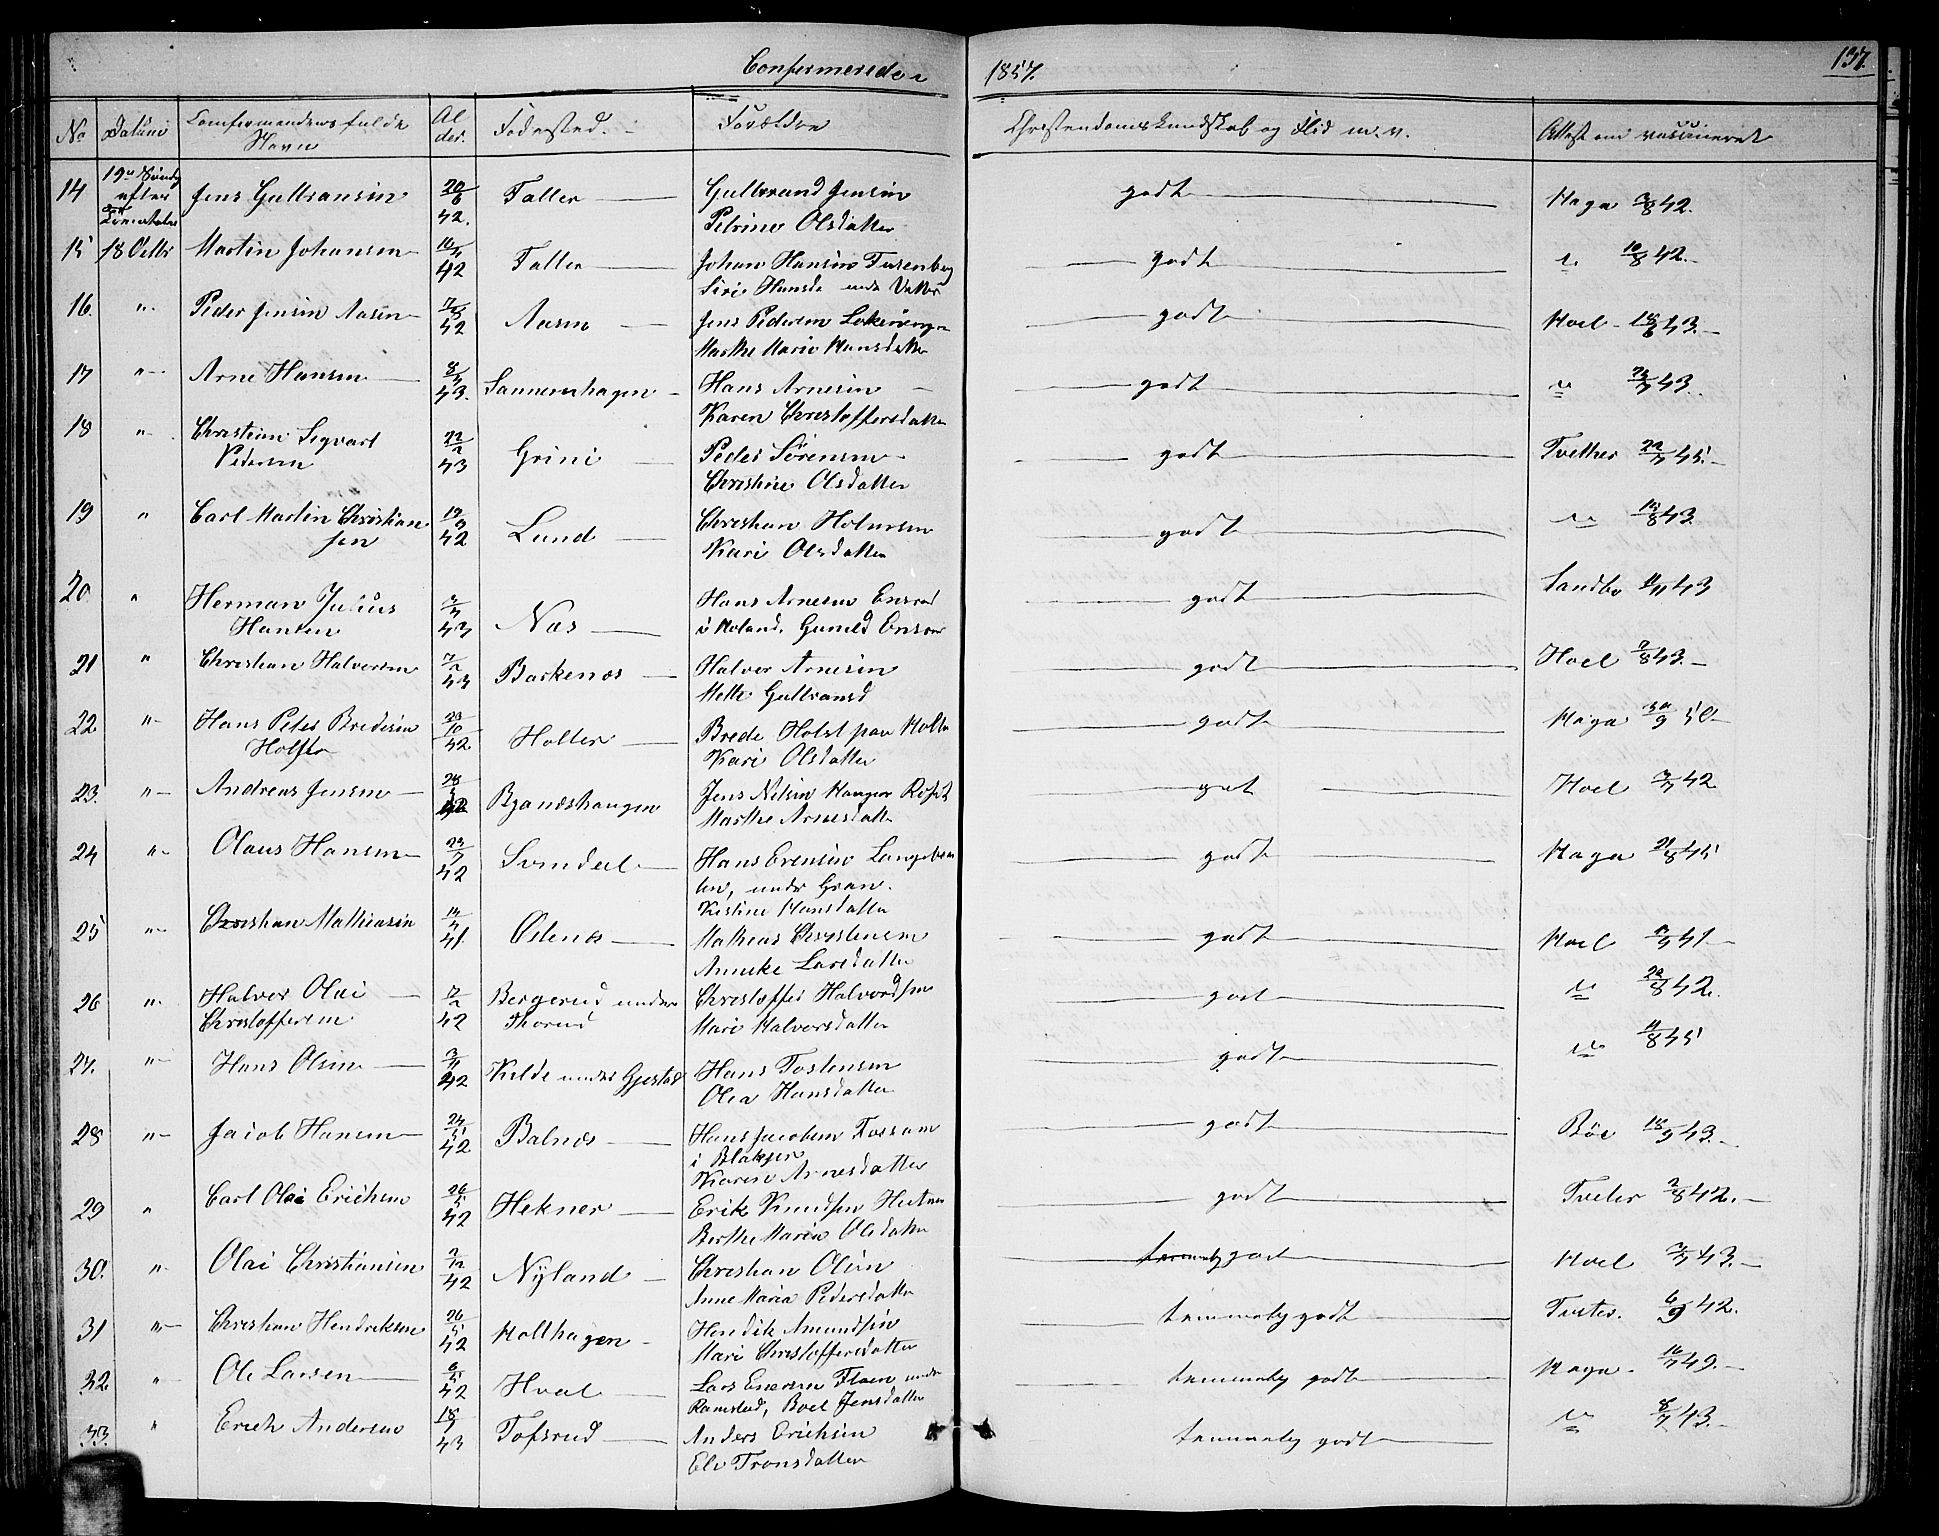 Confirmerede
1857.
137.
No Datum Confirmandens fulde Navn Alder. Fødested. Forældre Christendomskundskab og Flid m.v. Attest om vaccineret
14 19de Søndag efter Jens Gulbransen 20/6 42. Faller Gulbrand Jensen godt Haga 3/8 42.
Petrine Olsdatter
15 18 Octbr Martin Johansen 16/4 42 Faller Johan Hansen godt " 10/8 42.
Siri Hansd
16. " Peder Jensen Aasen 7/8 42 Aasen Jens Pedersen godt Hoel 18/6 43.
Marthe Marie Hansdatter
17 " Arne Hansen 8/4 43. Sannershagen Hans Arnesen godt " 23/7 43.
Karen Christoffersdatter
18 " Christian Sigvart 22/2 43 Grini Peder Sørensen godt Tvether 22/7 45.
Pedersen Christine Olsdatter
19 " Carl Martin Christian 19/9 42 Lund Christian Holmsen godt " 13/8 43.
sen Kari Olsdatter
20. " Herman Julius 3/7 43 Næs Hans Arnesen godt Sandbo 11/11 43
Hansen i Høland. Gunild
21 " Christian Halvorsen 7/2 43 Barkenæs Halvor Arnesen godt Hoel 7/8 43.
Mette Gulbransd
22 " Hans Peter Bredesen 23/10 42. Holter Brede Holst paa Holter godt Haga 30/9 50
Holst Kari Olsdatter
23. " Andreas Jensen 28/3 42 Bjandshaugen Jens Nilsen godt Hoel 3/7 42
Marthe Arnesdatter
24 " Olaus Hansen 23/7 42 Svindal Hans Evensen godt Haga 21/8 45
under Gran.
Kistine Hansdatter
25 " Christian Mathiesen 14/4 41. Østnæs Mathias Christensen godt Hoel 1/7 41
Anneke Larsdatter
26 " Halvor Olai 17/2 42 Bergerud under Christoffer Halvordsen godt " 29/8 42.
Christoffersen Thorud Mari Halvorsdatter
27. " Hans Olsen 3/11 42 Kilde under Gjestad Hans Tostensen godt " 11/8 45
Olea Hansdatter
28 " Jacob Hansen 24/5 42 Balnæs Hans Jacobsen Fossum godt Bøe 18/7 43.
i Blakjer
Karen Arnesdatter
29 " Carl Olai Erichsen 26/5 42 Hekner Erik Knudsen godt Tveter 2/8 42.
Berthe Maria Olsdatter
30. " Olai Christiansen 2/12 42 Nyland Christian Olsen temmelig godt Hoel 3/7 43.
Anne Maria Pedersdatter
31 " Christian Hendriksen 26/5 42 Holthagen Hendrik Amundsen temmelig godt Tveter. 6/9 42.
Mari Christoffersdatter
32 " Ole Larsen 6/5 42 Hval Lars Enersen Floen under temmelig godt Haga 16/7 49.
Ramstad, Boel Jensdatter
33. " Erich Andersen 18/1 43 Tofsrud Anders Erichsen temmelig godt " 8/7 43.
Eli Tronsdatter